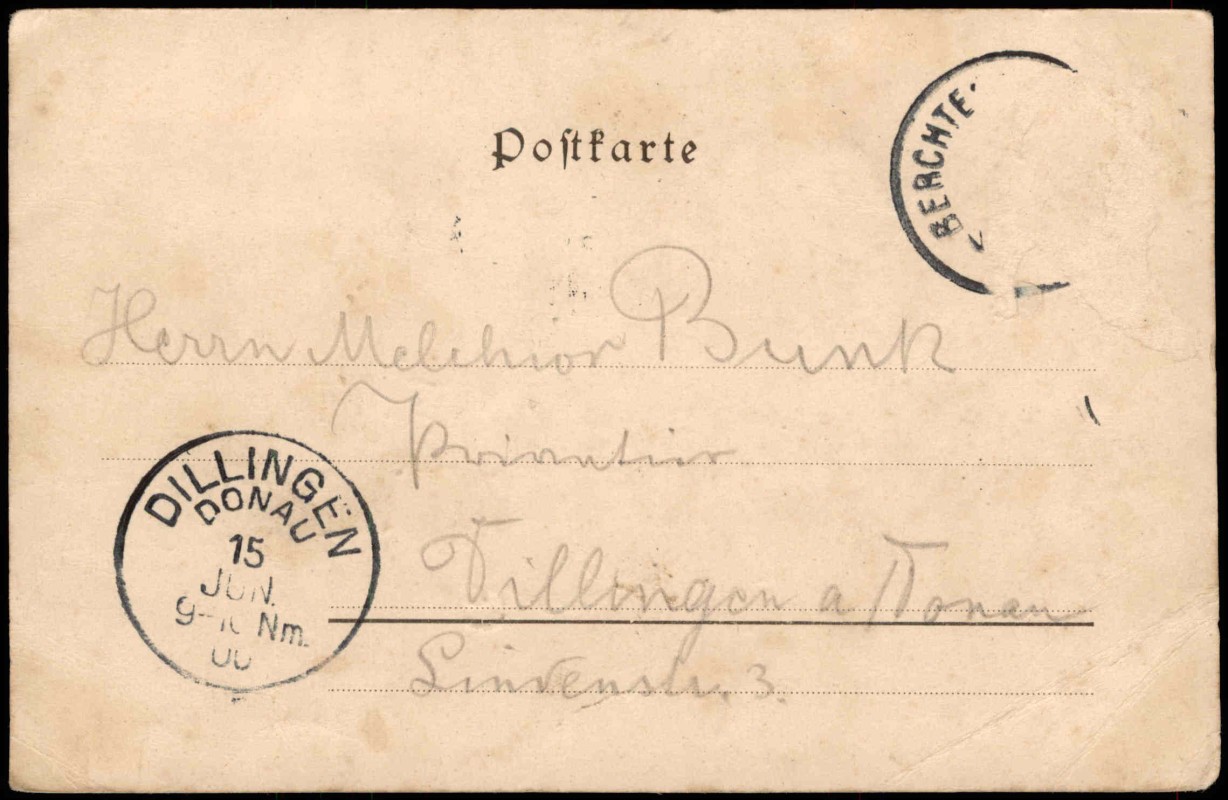 Postkarte
BERCHTE
Herrn Melchior Bunk
Privatier
Dillingen a/Donau
Lindenstr. 3.
DILLINGEN
DONAU
15
JUN.
9-10 Nm.
00